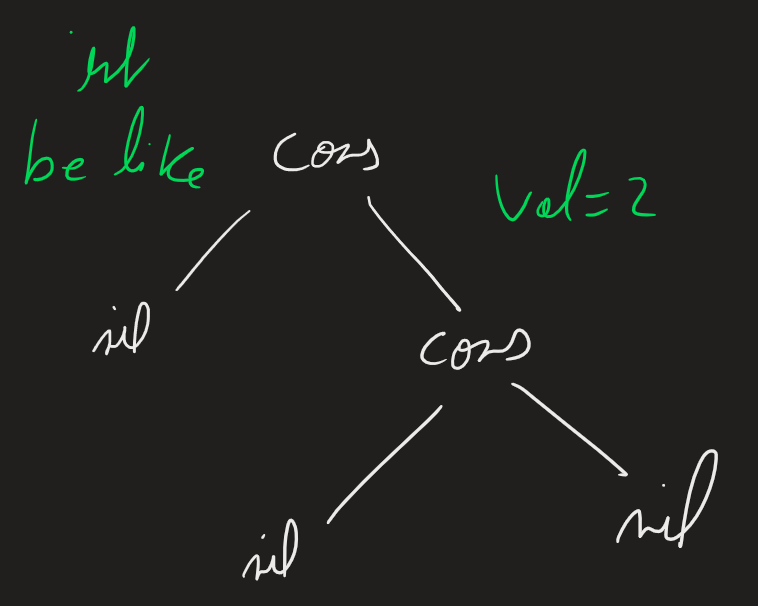 int
be like
Cons
Val=2
nil
cons
nil
nil